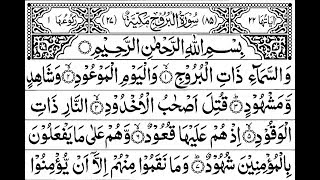 اٰیَاتُهَا ٢٢ (٨٥) سُوْرَةُ الْبُرُوْجِ مَكِّیَّةٌ (٢٤) رُكُوْعُهَا ١
بِسْمِ اللّٰهِ الرَّحْمٰنِ الرَّحِیْمِ
وَ السَّمَآءِ ذَاتِ الْبُرُوْجِ ۙ﴿١﴾ وَ الْیَوْمِ الْمَوْعُوْدِ ۙ﴿٢﴾ وَ شَاهِدٍ
وَّ مَشْهُوْدٍ ؕ﴿٣﴾ قُتِلَ اَصْحٰبُ الْاُخْدُوْدِ ۙ﴿٤﴾ النَّارِ ذَاتِ
الْوَقُوْدِ ۙ﴿٥﴾ اِذْ هُمْ عَلَیْهَا قُعُوْدٌ ۙ﴿٦﴾ وَّ هُمْ عَلٰی مَا یَفْعَلُوْنَ
بِالْمُؤْمِنِیْنَ شُهُوْدٌ ؕ﴿٧﴾ وَ مَا نَقَمُوْا مِنْهُمْ اِلَّاۤ اَنْ یُّؤْمِنُوْا